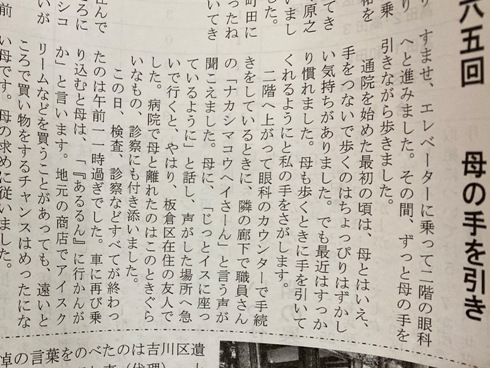 六五回　母の手を引き
すませ、エレベーターに乗って二階の眼科
へと進みました。その間、ずっと母の手を
引きながら歩きました。
通院を始めた最初の頃は、母とはいえ、
手をつないで歩くのはちょっぴりはずかし
い気持ちがありました。でも最近はすっか
り慣れました。母も歩くときに手を引いて
くれるようにと私の手をさがします。
二階へ上がって眼科のカウンターで手続
きをしているときに、隣の廊下で職員さん
の「ナカシマコウヘイさーん」と言う声が
聞こえました。母に、「じっとイスに座っ
ているように」と話し、声がした場所へ急
いで行くと、やはり、板倉区在住の友人で
した。病院で母と離れたのはこのときぐら
いなもの、診察にも付き添いました。
この日、検査、診察などすべてが終わっ
たのは午前一一時過ぎでした。車に再び乗
り込むと母は、「『あるるん』に行かんが
か」と言います。地元の商店でアイスク
リームなどを買うことがあっても、遠いと
ころで買い物をするチャンスはめったにな
い母です。母の求めに従いました。
乗
てき
原之
いまし
町田に
ったね
いてき
住んで
ろに
シコ
前
悼の言葉をのべたのは吉川区遺